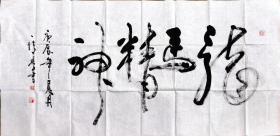 龍馬精神
庚辰年夏月